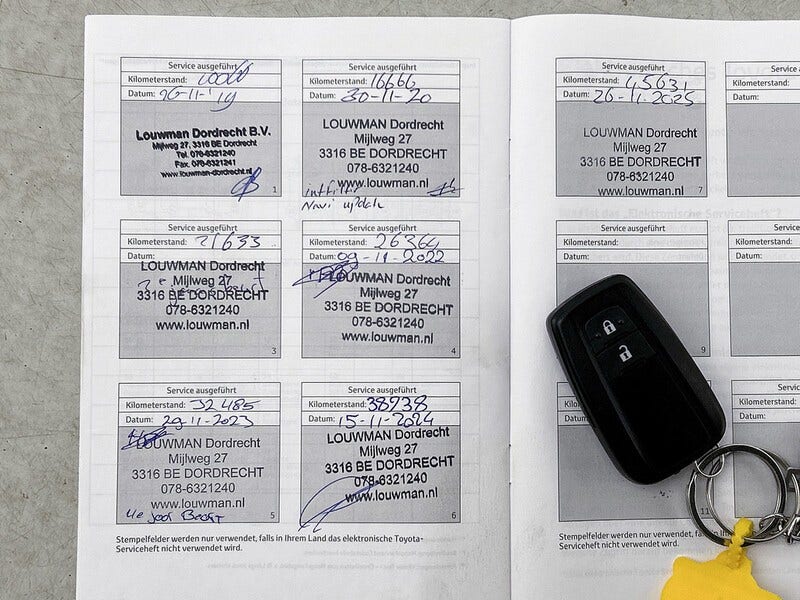 Service ausgeführt
Kilometerstand: 10060
Datum: 26-11-'19
Louwman Dordrecht B.V.
Mijlweg 27, 3316 BE Dordrecht
Tel. 078-6321240
Fax. 078-6321241
www.louwman-dordrecht.nl
1
Service ausgeführt
Kilometerstand: 16666
Datum: 30-11-20
LOUWMAN Dordrecht
Mijlweg 27
3316 BE DORDRECHT
078-6321240
www.louwman.nl
intfilter
Navi update
Service ausgeführt
Kilometerstand: 21633
Datum:
LOUWMAN Dordrecht
Mijlweg 27
3316 BE DORDRECHT
078-6321240
www.louwman.nl
3
Service ausgeführt
Kilometerstand: 26364
Datum: 09-11-2022
LOUWMAN Dordrecht
Mijlweg 27
3316 BE DORDRECHT
078-6321240
www.louwman.nl
4
Service ausgeführt
Kilometerstand: 32485
Datum: 29-11-2023
LOUWMAN Dordrecht
Mijlweg 27
3316 BE DORDRECHT
078-6321240
www.louwman.nl
5
Service ausgeführt
Kilometerstand: 38938
Datum: 15-11-2024
LOUWMAN Dordrecht
Mijlweg 27
3316 BE DORDRECHT
078-6321240
www.louwman.nl
6
Stempelfelder werden nur verwendet, falls in Ihrem Land das elektronische Toyota-
Serviceheft nicht verwendet wird.
Service ausgeführt
Kilometerstand: 45631
Datum: 26-11-2025
LOUWMAN Dordrecht
Mijlweg 27
3316 BE DORDRECHT
078-6321240
www.louwman.nl
7
Kilometerstand:
Datum:
Service ausgeführt
Kilometerstand:
Datum:
9
Kilometerstand:
Datum:
Service
Kilometerstand:
Datum:
11
Stempelfelder werden nur verwendet, falls in Ihrem Land das
Serviceheft nicht verwendet wird.